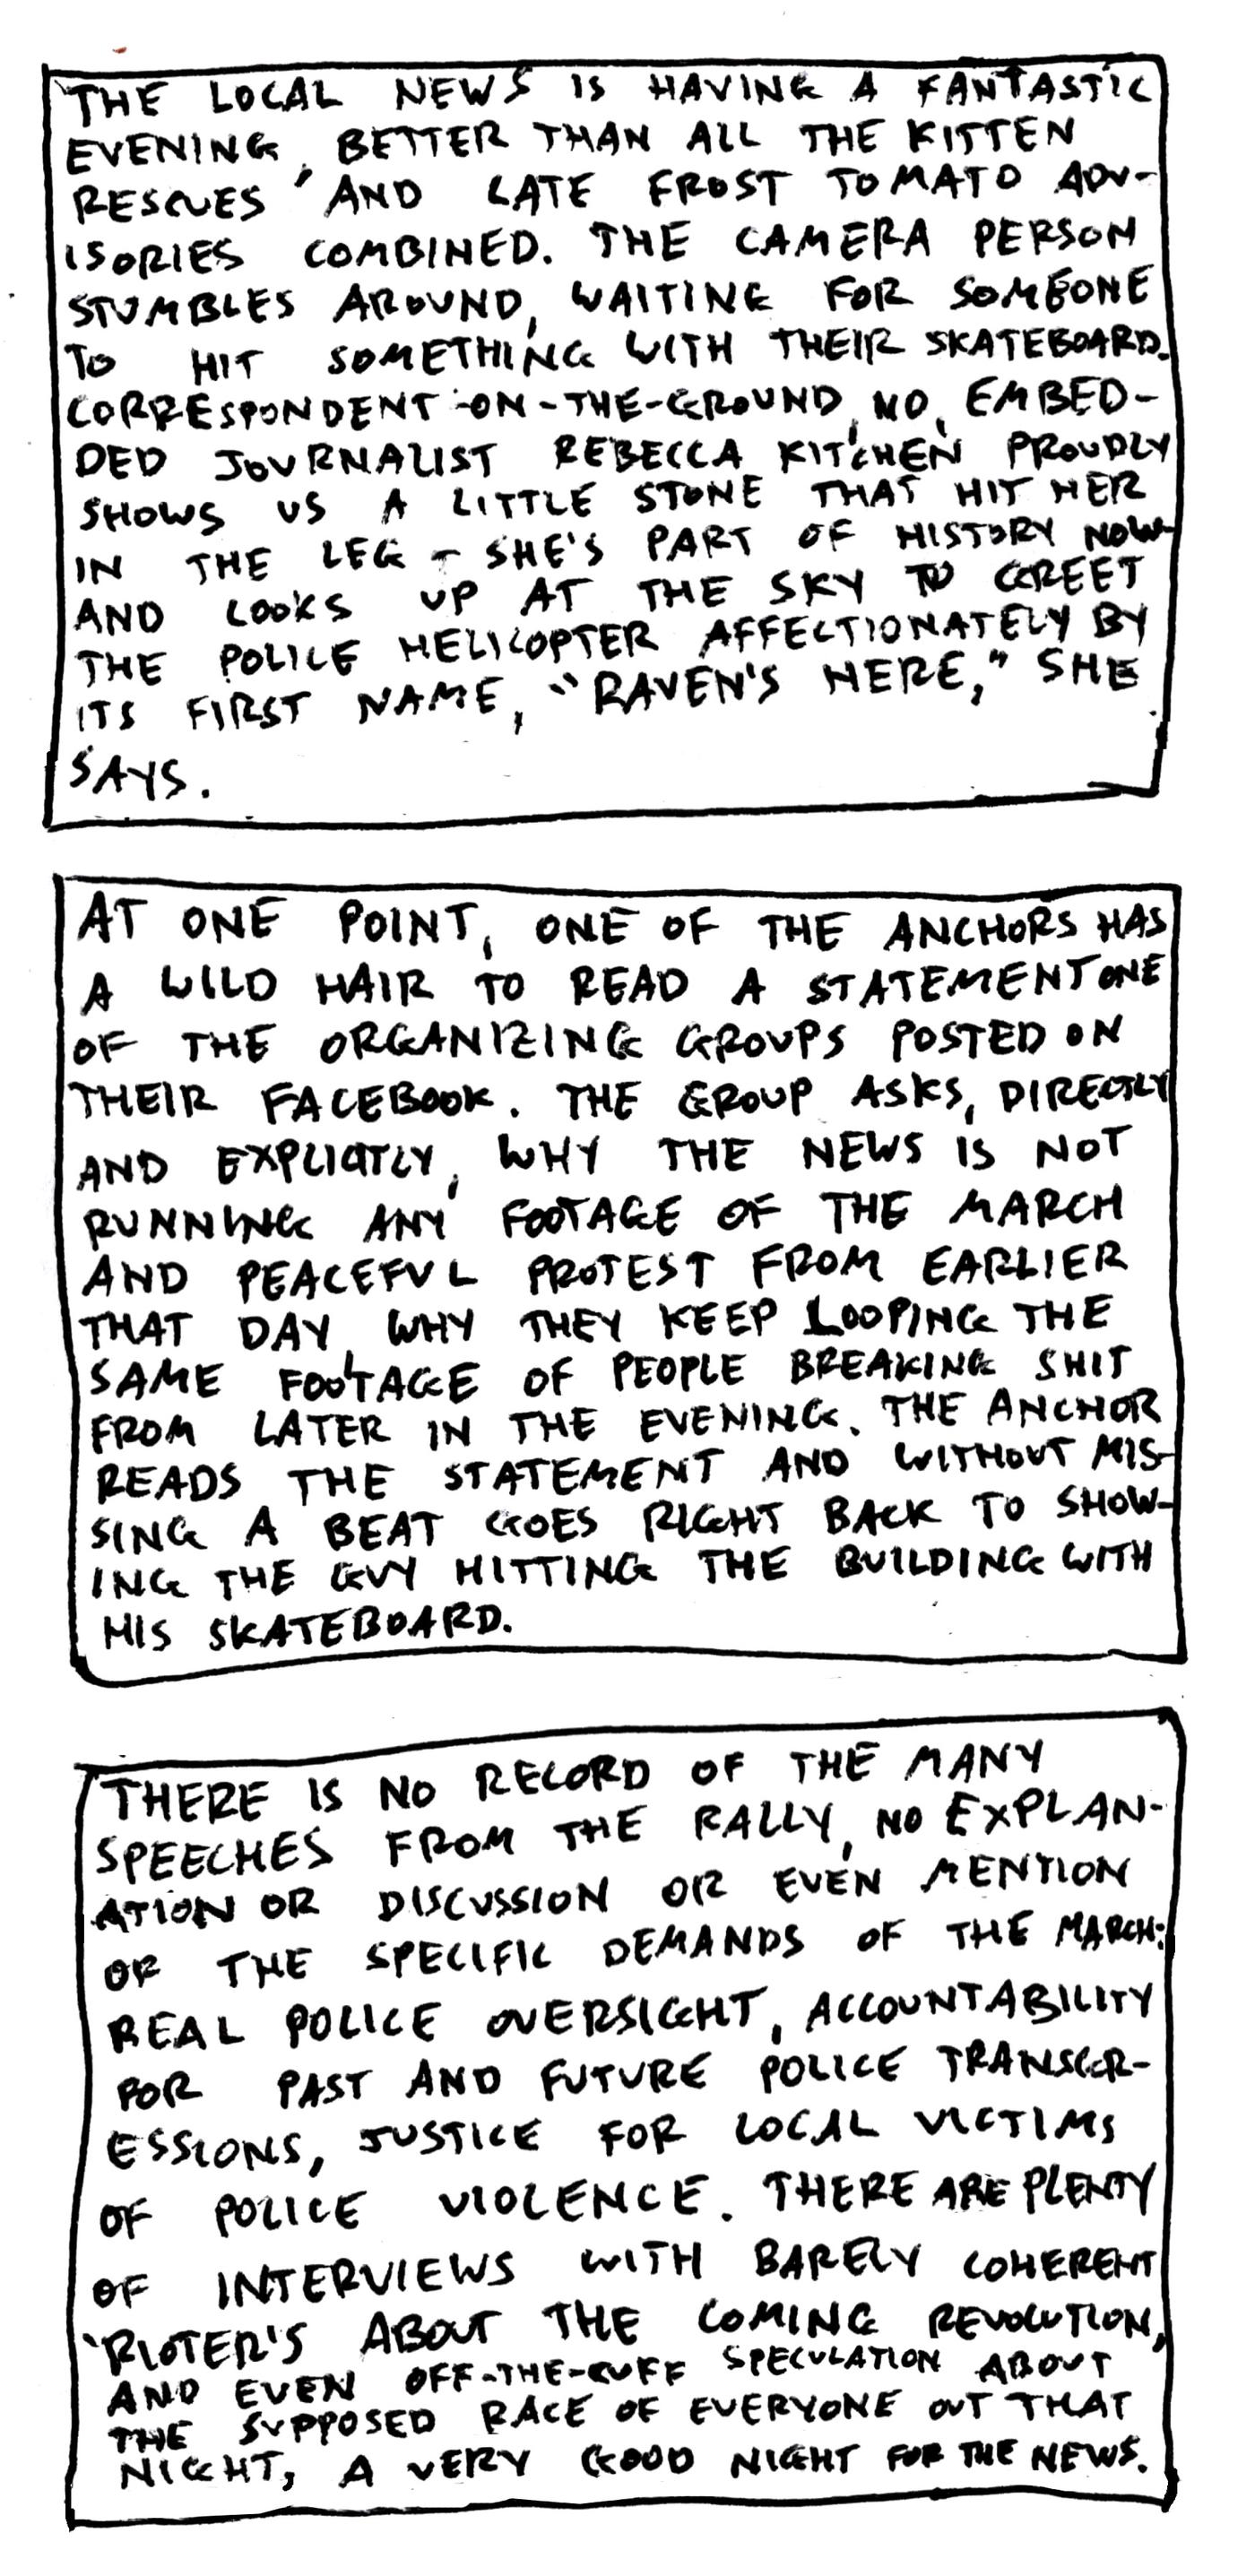 THE LOCAL NEWS IS HAVING A FANTASTIC
EVENING, BETTER THAN ALL THE KITTEN
RESCUES AND LATE FROST TOMATO ADV-
ISORIES COMBINED. THE CAMERA PERSON
STUMBLES AROUND, WAITING FOR SOMEONE
TO HIT SOMETHING WITH THEIR SKATEBOARD.
CORRESPONDENT-ON-THE-GROUND, NO, EMBED-
DED JOURNALIST REBECCA KITCHEN PROUDLY
SHOWS US A LITTLE STONE THAT HIT HER
IN THE LEG - SHE'S PART OF HISTORY NOW-
AND LOOKS UP AT THE SKY TO GREET
THE POLICE HELICOPTER AFFECTIONATELY BY
ITS FIRST NAME, "RAVEN'S HERE," SHE
SAYS.
AT ONE POINT, ONE OF THE ANCHORS HAS
A WILD HAIR TO READ A STATEMENT ONE
OF THE ORGANIZING GROUPS POSTED ON
THEIR FACEBOOK. THE GROUP ASKS, DIRECTLY
AND EXPLICITLY, WHY THE NEWS IS NOT
RUNNING ANY FOOTAGE OF THE MARCH
AND PEACEFUL PROTEST FROM EARLIER
THAT DAY, WHY THEY KEEP LOOPING THE
SAME FOOTAGE OF PEOPLE BREAKING SHIT
FROM LATER IN THE EVENING. THE ANCHOR
READS THE STATEMENT AND WITHOUT MIS-
SING A BEAT GOES RIGHT BACK TO SHOW-
ING THE GUY HITTING THE BUILDING WITH
HIS SKATEBOARD.
THERE IS NO RECORD OF THE MANY
SPEECHES FROM THE RALLY, NO EXPLAN-
ATION OR DISCUSSION OR EVEN MENTION
OF THE SPECIFIC DEMANDS OF THE MARCH:
REAL POLICE OVERSIGHT, ACCOUNTABILITY
FOR PAST AND FUTURE POLICE TRANSGR-
ESSIONS, JUSTICE FOR LOCAL VICTIMS
OF POLICE VIOLENCE. THERE ARE PLENTY
OF INTERVIEWS WITH BARELY COHERENT
'RIOTER'S ABOUT THE COMING REVOLUTION,
AND EVEN OFF-THE-CUFF SPECULATION ABOUT
THE SUPPOSED RACE OF EVERYONE OUT THAT
NIGHT, A VERY GOOD NIGHT FOR THE NEWS.